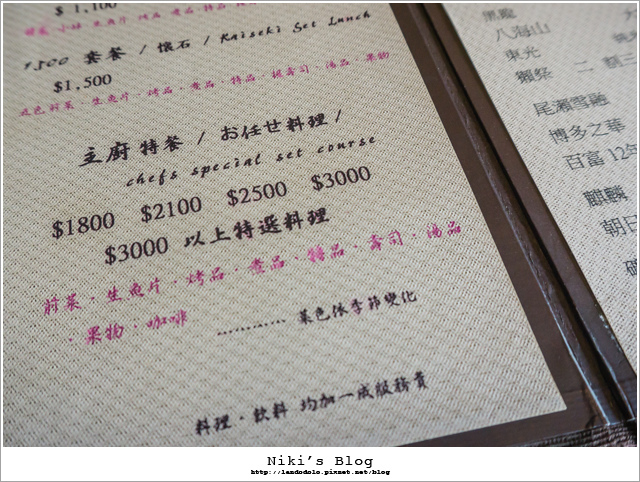 $1,100
1,500 套餐 / 懷石 / Kaiseki Set Lunch
$1,500
五色前菜·生魚片·烤品·煮品·特品·握壽司·湯品·果物
主廚特餐 / お任せ料理 /
chefs special set course
$1800 $2100 $2500 $3000
$3000 以上特選料理
前菜·生魚片·烤品·煮品·特品·壽司·湯品
·果物·咖啡
............ 菜色依季節變化
料理·飲料 均加一成服務費
黑龍
八海山
東光
獺祭 二割三
尾瀨雪融
博多之華
百富 12年
麒麟
朝日
Niki's Blog
http://landodolo.pixnet.net/blog